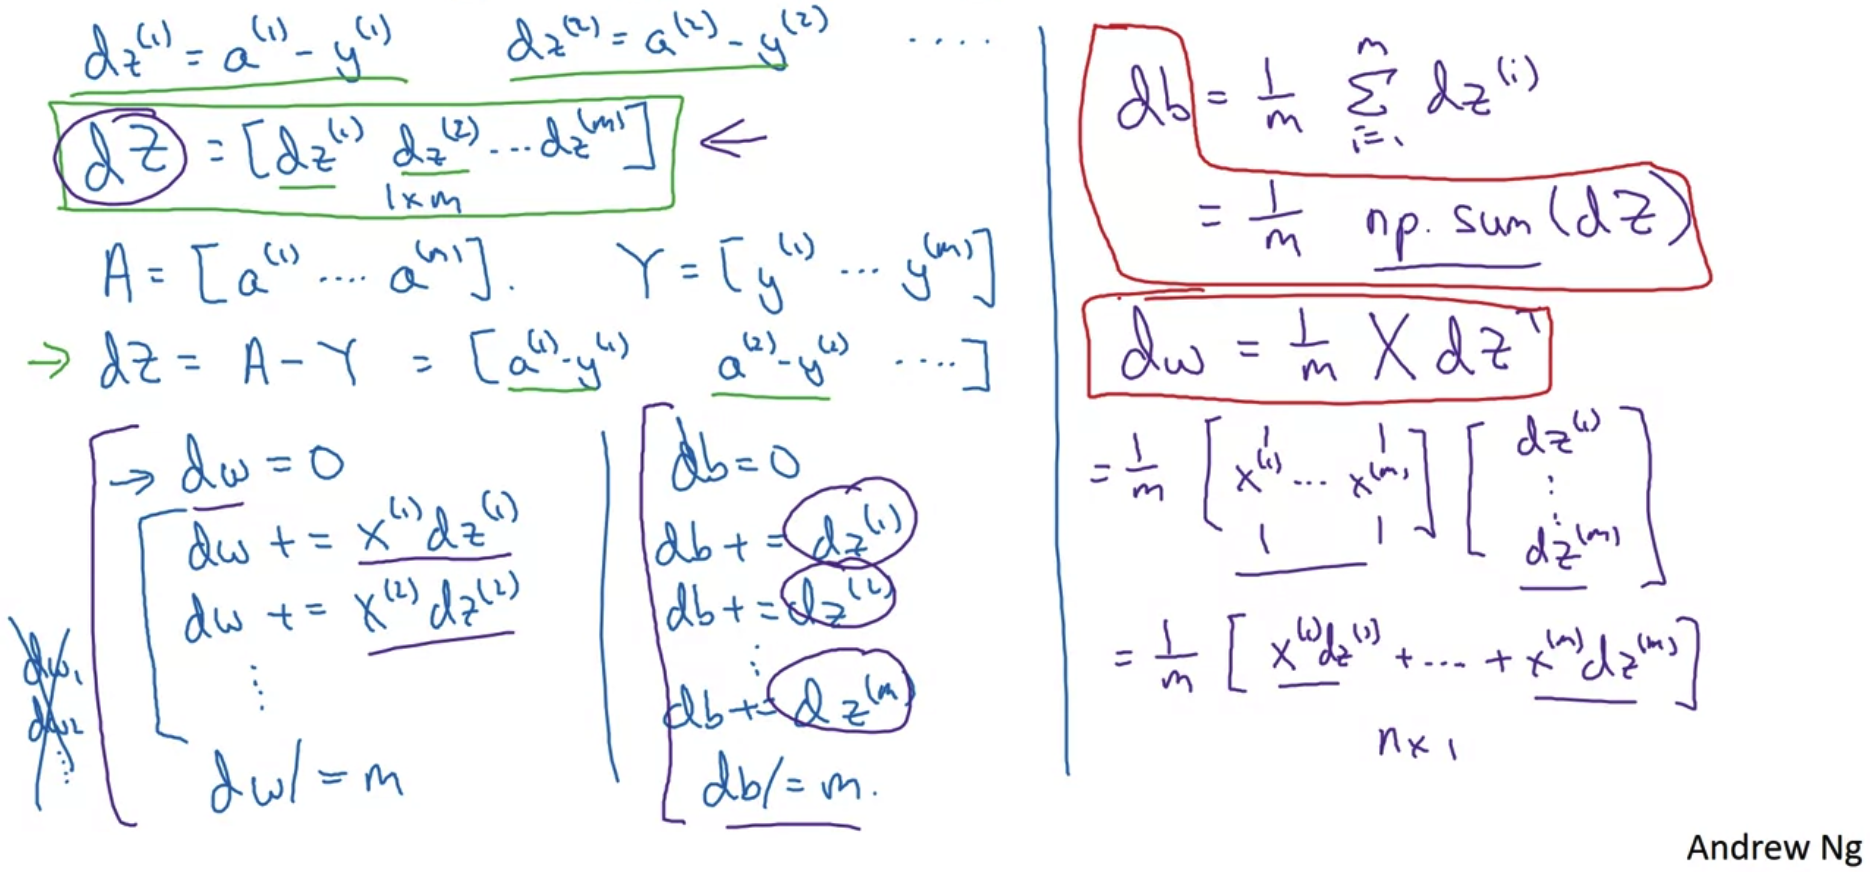 dz⁽¹⁾ = a⁽¹⁾ - y⁽¹⁾ dz⁽²⁾ = a⁽²⁾ - y⁽²⁾ ....
dZ = [dz⁽¹⁾ dz⁽²⁾ ... dz⁽ᵐ⁾] ←
1×m
A = [a⁽¹⁾ .... a⁽ᵐ⁾]. Y = [y⁽¹⁾ ... y⁽ᵐ⁾]
→ dZ = A - Y = [a⁽¹⁾-y⁽¹⁾ a⁽²⁾-y⁽²⁾ ....]
→ dw = 0
dw += x⁽¹⁾dz⁽¹⁾
dw += x⁽²⁾dz⁽²⁾
⋮
dw /= m
dw₁
dw₂
⋮
db = 0
db += dz⁽¹⁾
db += dz⁽²⁾
⋮
db += dz⁽ᵐ⁾
db /= m.
db = 1/m Σᵢ₌₁ᵐ dz⁽ⁱ⁾
= 1/m np.sum(dZ)
dw = 1/m X dZᵀ
= 1/m [x⁽¹⁾ ... x⁽ᵐ⁾] [dz⁽¹⁾ ⋮ dz⁽ᵐ⁾]
= 1/m [x⁽¹⁾dz⁽¹⁾ + .... + x⁽ᵐ⁾dz⁽ᵐ⁾]
n×1
Andrew Ng